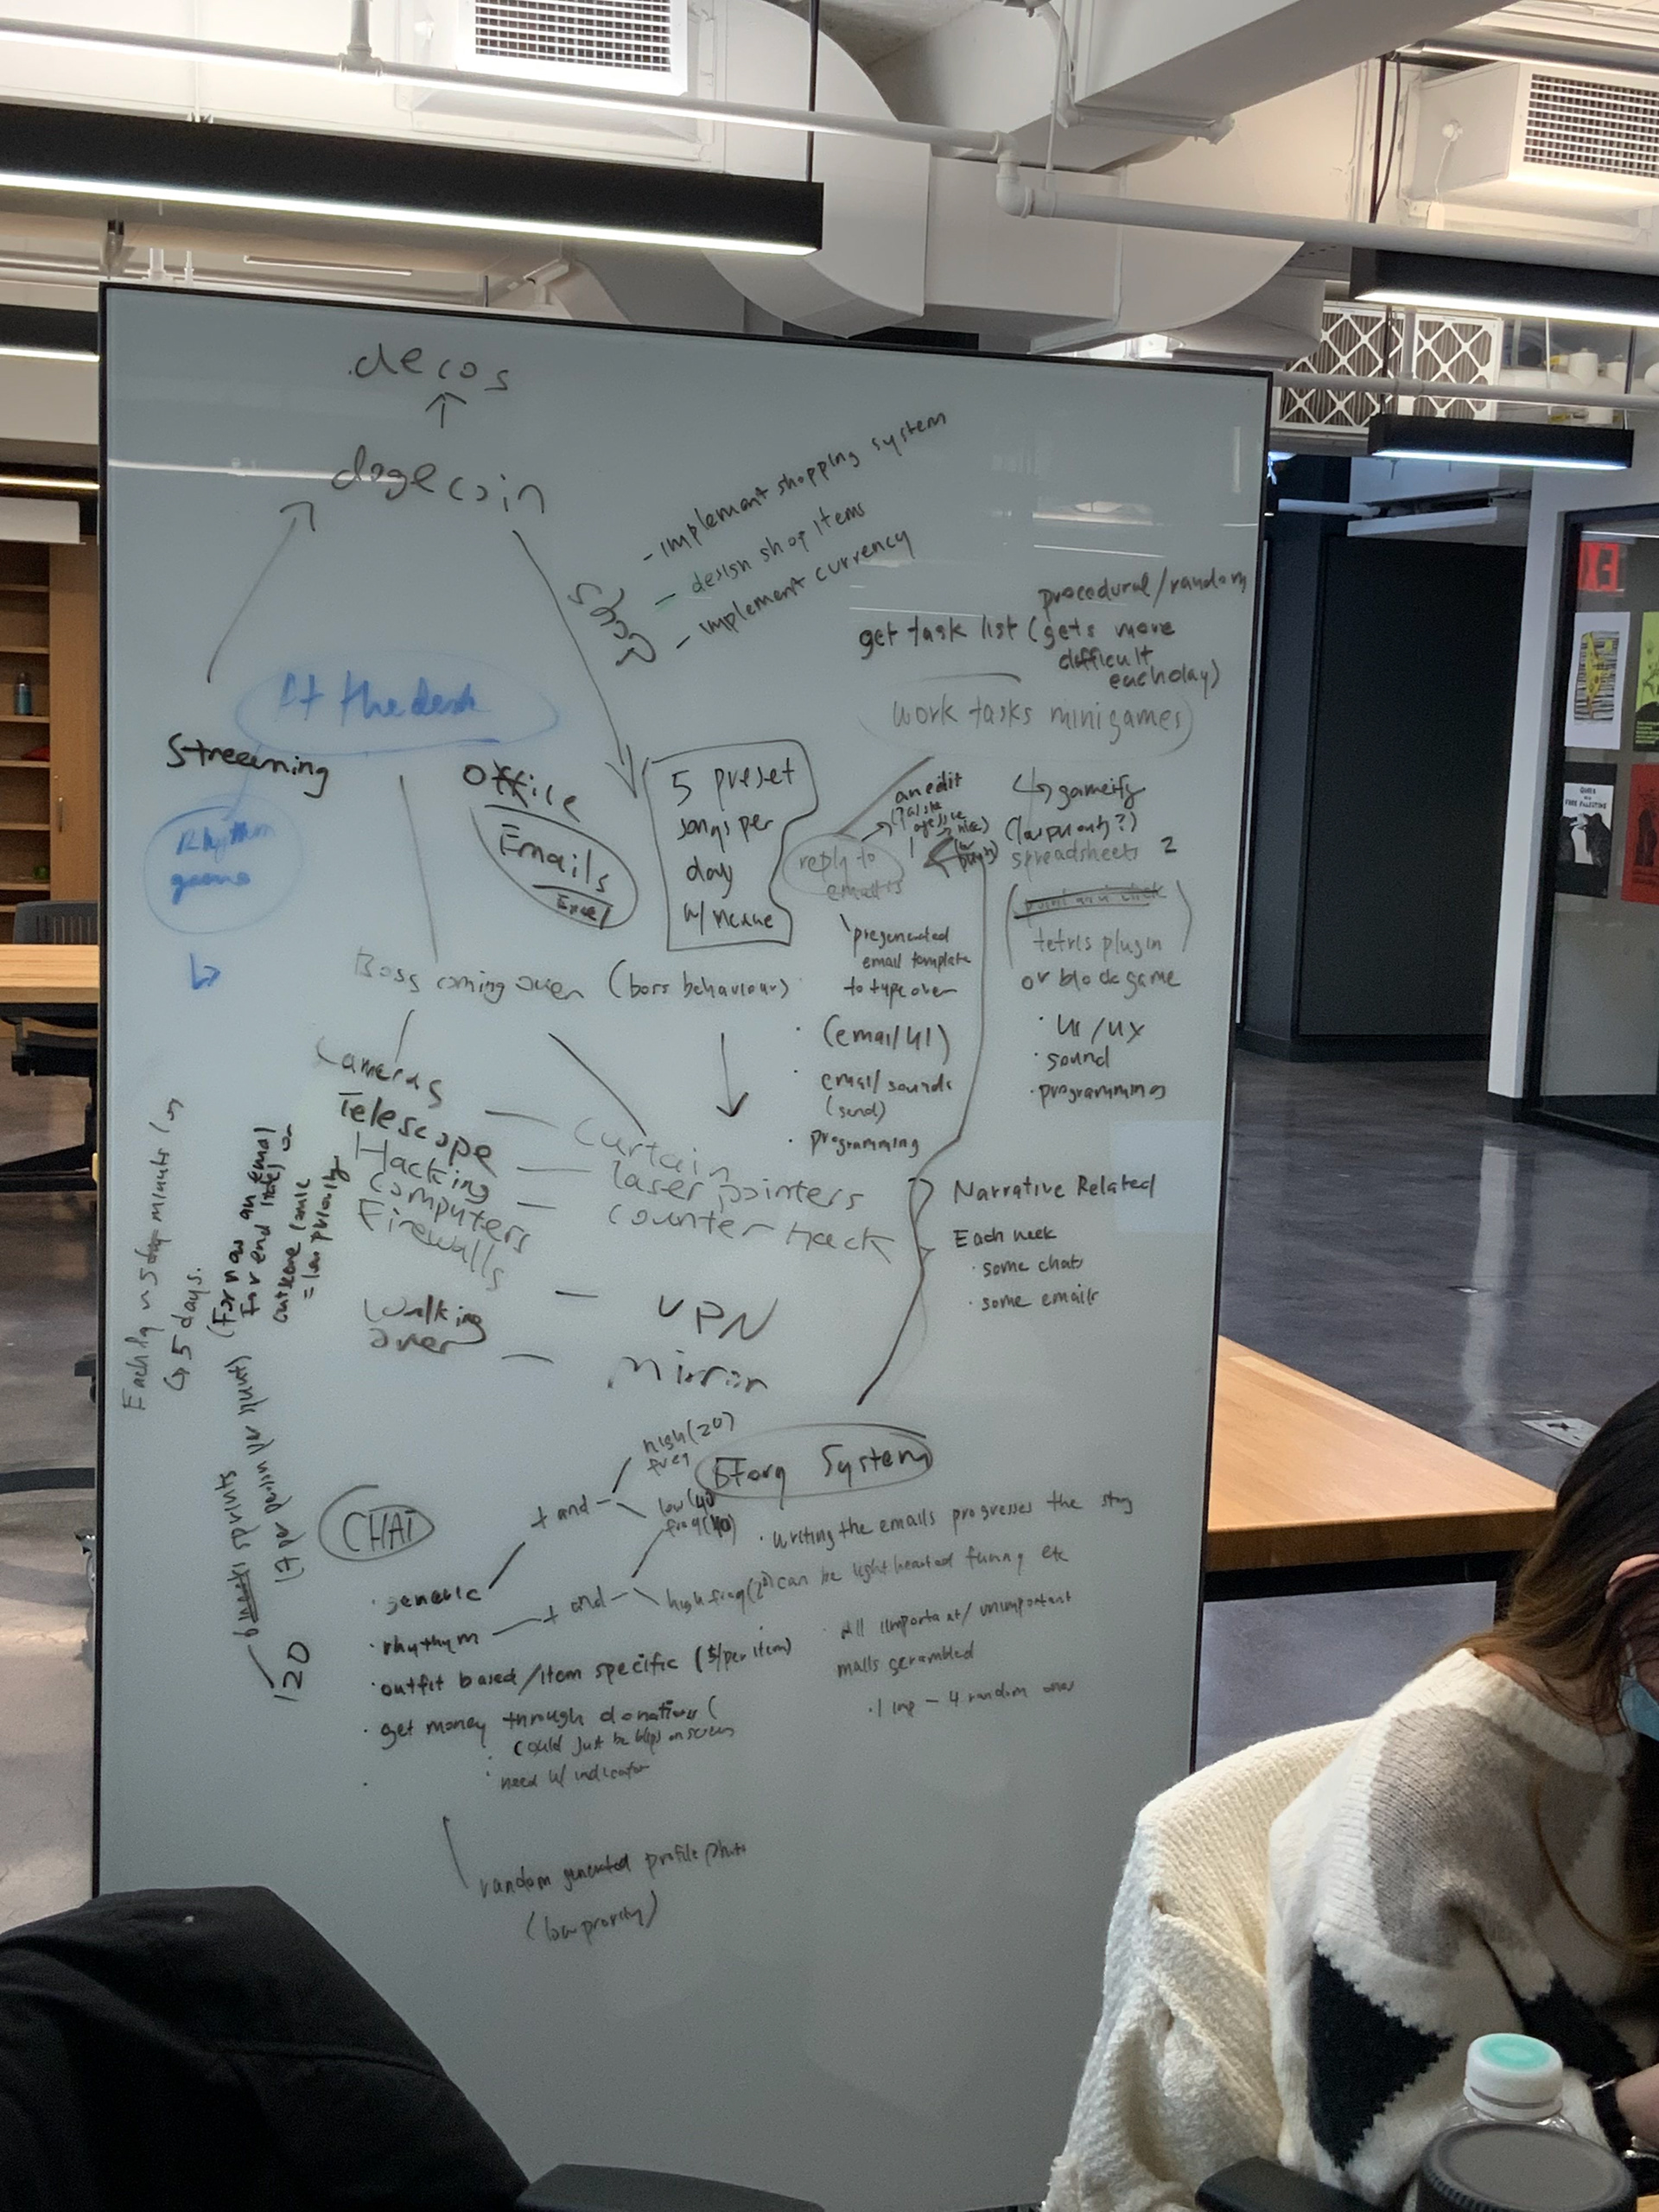 decos
dogecoin
Shop
- implement shopping system
- design shop items
- implement currency
procedural/random
get task list (gets more
difficult
each day)
work tasks minigames
At the desk
Streaming
Rhythm
game
Office
Emails
Excel
5 preset
songs per
day
w/
reply to
emails
an edit
gameify
spreadsheets 2
point and click
tetris plugin
or block game
· UI/UX
· sound
· programming
email template
to type over
· (email UI)
· email sounds
(send)
· programming
Boss coming over (boss behaviour)
Cameras
Telescope
Hacking
computers
Firewalls
Walking
over
Curtain
laser pointers
counter hack
VPN
mirror
Narrative Related
Each week
· some chats
· some emails
5 minutes
↳ 5 days.
(For now an email
for end
outscene comic
= low priority
sprints
120
CHAT
· generic
+ and -
high (20)
freq
low (40
freq (40)
· rhythm
+ and -
high freq (20)
· outfit based/item specific (5/per item)
· get money through donations (
could just be blips on screen
· need w/ indicator
random generated profile photo
(low priority)
Story System
· writing the emails progresses the story
can be light hearted funny etc
· All important/unimportant
mails scrambled
· 1 imp - 4 random ones